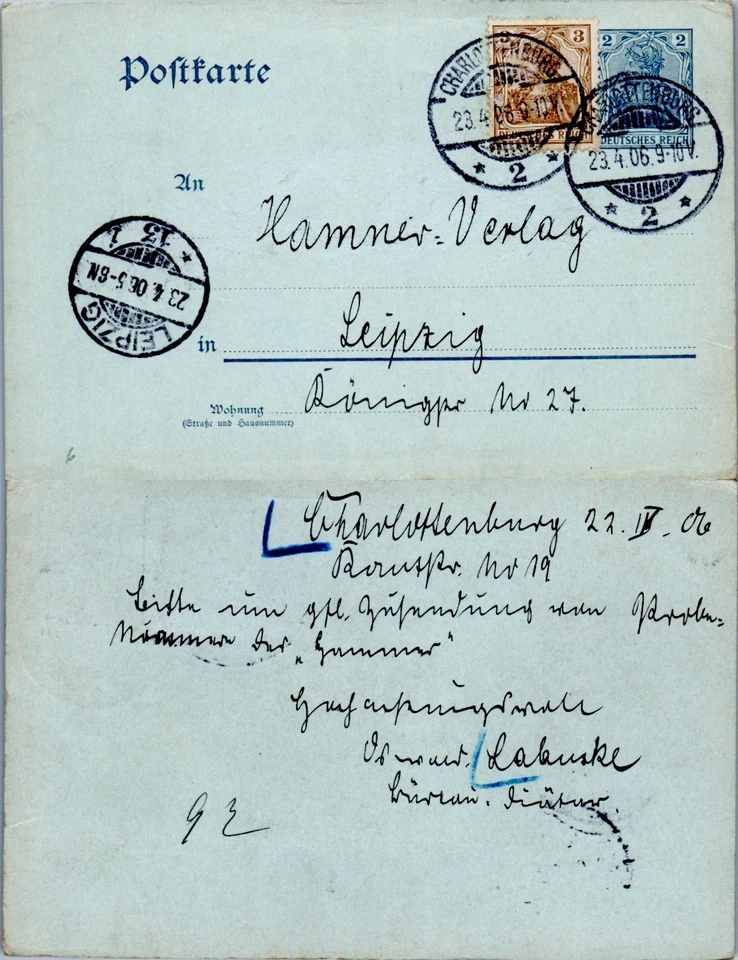 Postkarte
3
DEUTSCHES REICH
2 2
DEUTSCHES REICH
CHARLOTTENBURG
23.4.06.9-10V.
* 2 *
CHARLOTTENBURG
23.4.06.9-10V.
* 2 *
An
Hammer-Verlag
LEIPZIG
13
1
23.4.06.5-6N
in
Leipzig
Wohnung
(Straße und Hausnummer)
Königstr No 27.
Charlottenburg 22. IV. 06
Kantstr. No 19
Bitte um gfl. Zusendung von Probe-
Nummern des „Hammer“
Hochachtungsvoll
Oswald Labuske
Büreau-Diätar.